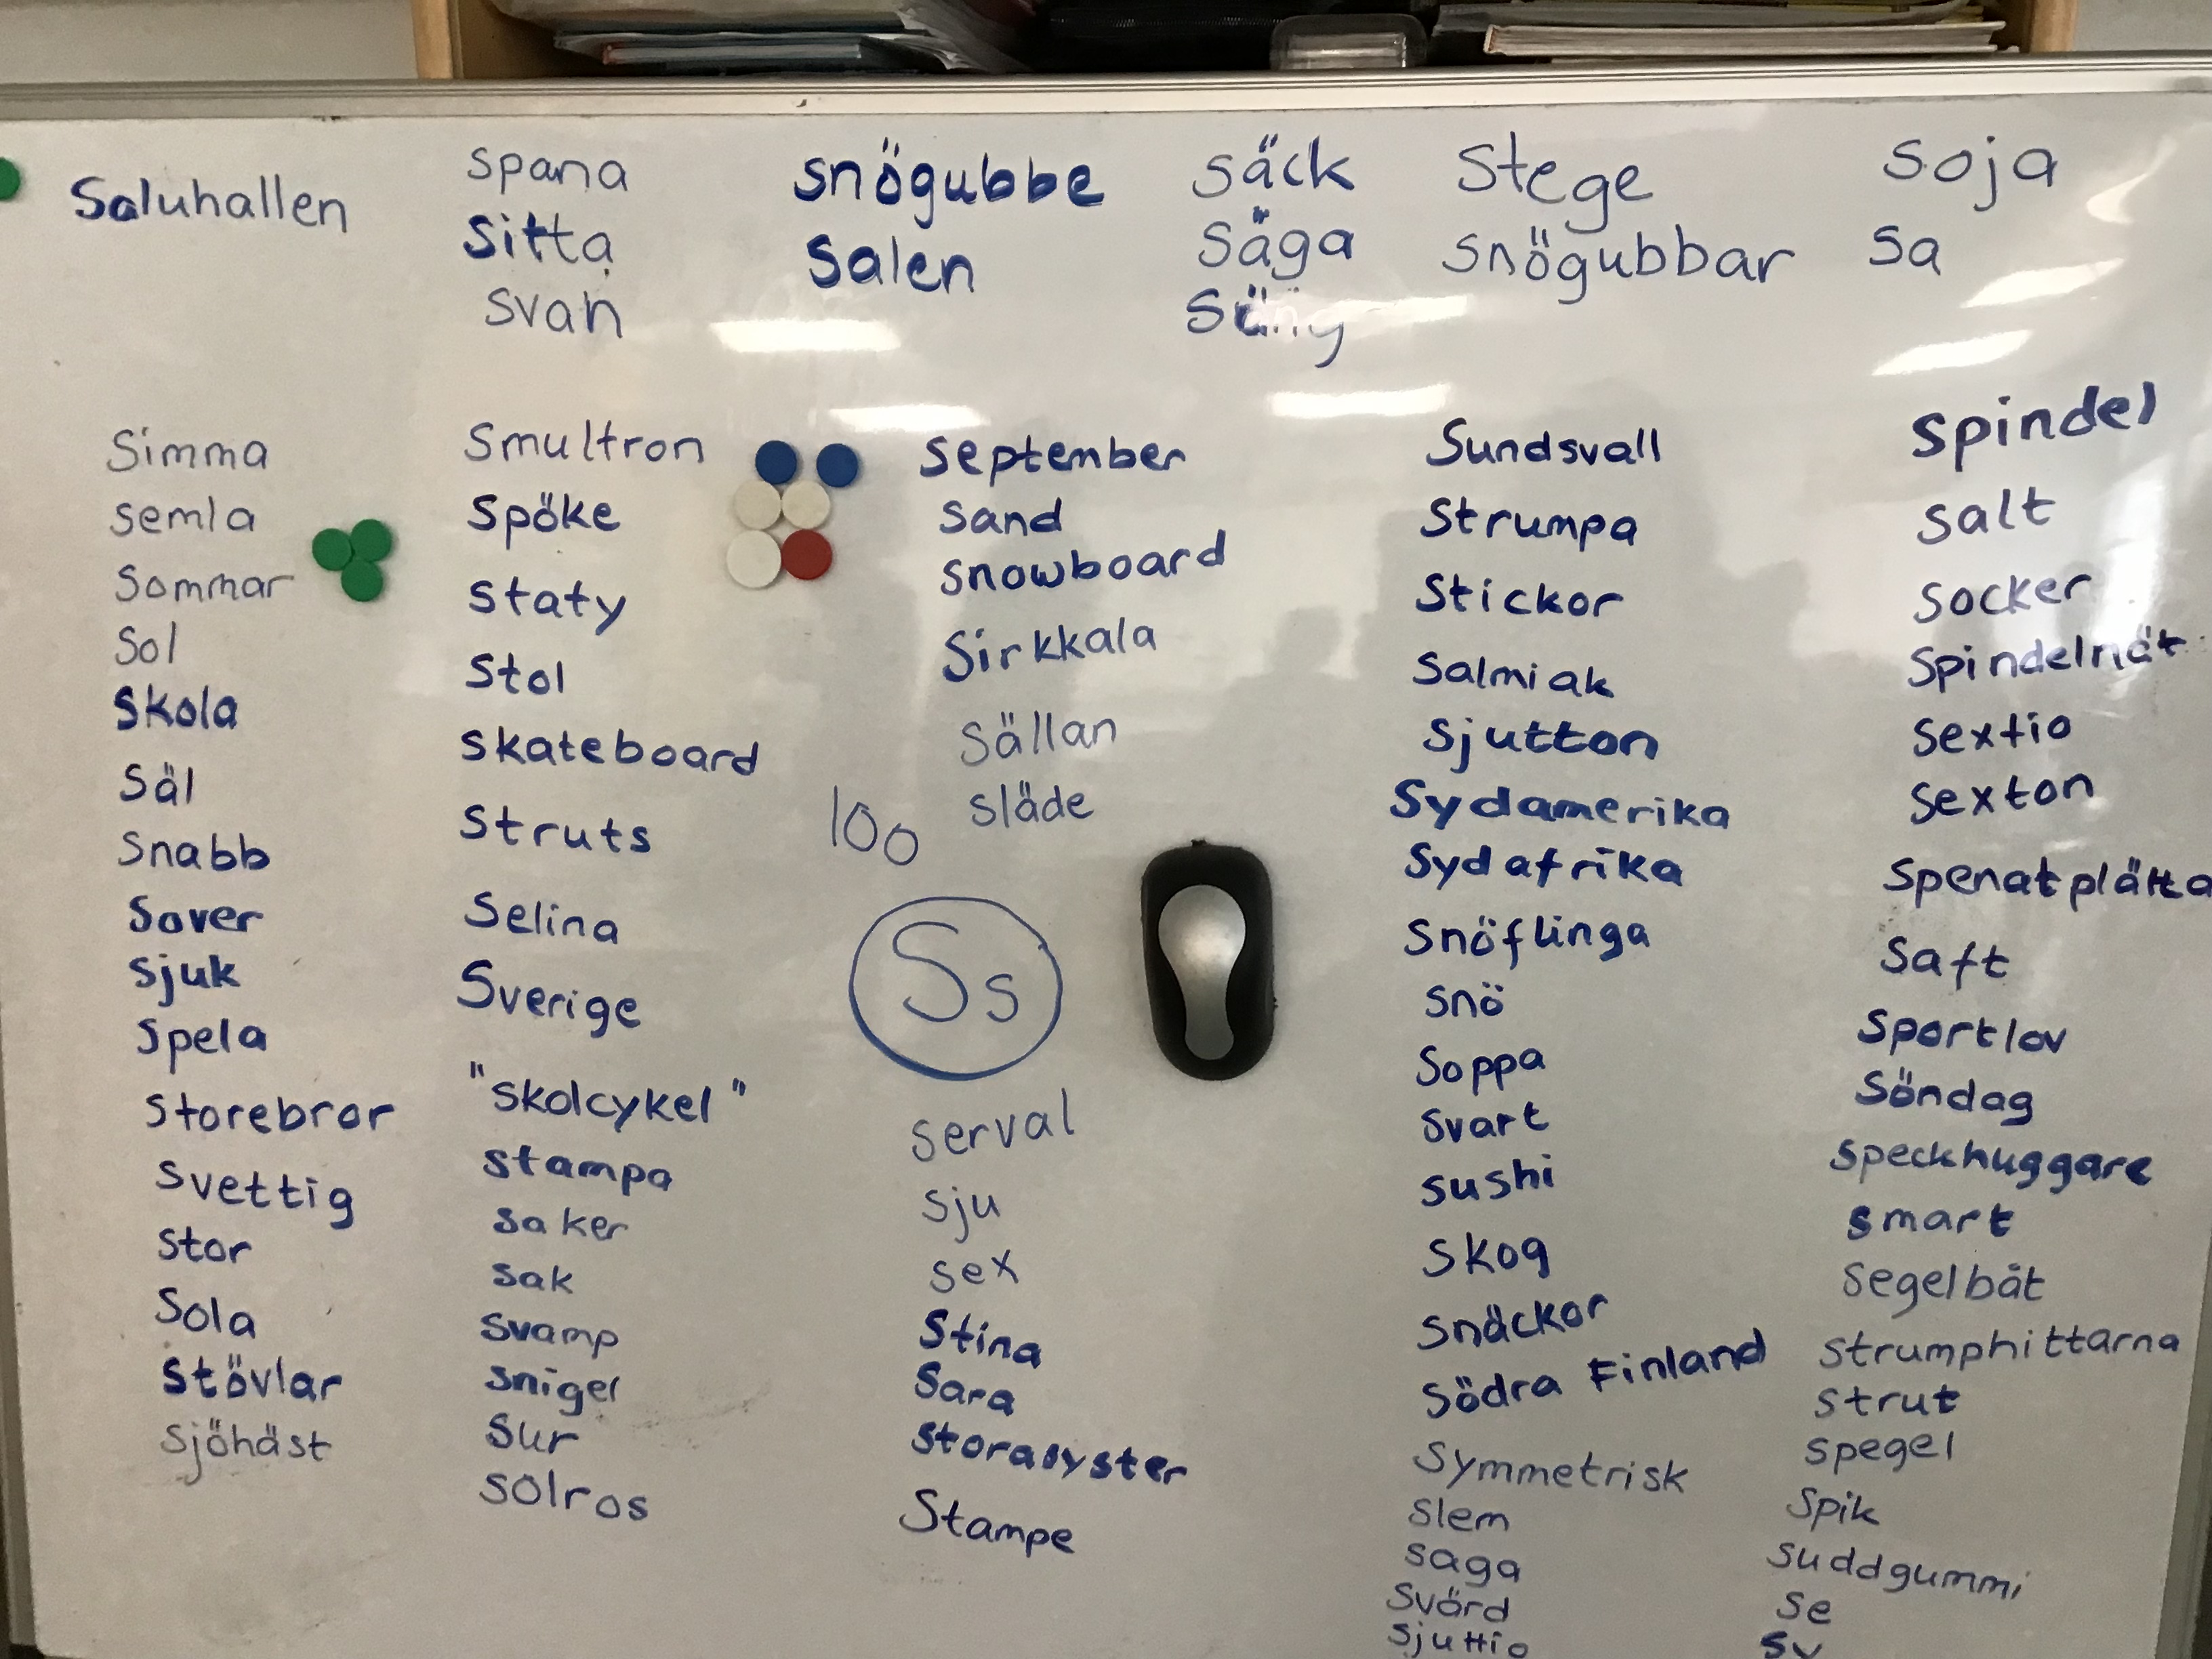 Saluhallen
spana
sitta
svan
snögubbe
Salen
säck
såga
säng
Stege
snögubbar
soja
sa
Simma
semla
Sommar
Sol
Skola
Säl
Snabb
Sover
sjuk
spela
storebror
svettig
stor
Sola
stövlar
sjöhäst
Smultron
Spöke
staty
stol
skateboard
struts
Selina
Sverige
"skolcykel"
stampa
saker
sak
svamp
snigel
sur
solros
september
sand
snowboard
Sirkkala
sällan
släde
100
Ss
serval
sju
sex
Stina
Sara
storasyster
Stampe
Sundsvall
Strumpa
Stickor
Salmiak
sjutton
Sydamerika
Sydafrika
snöflinga
snö
Soppa
svart
sushi
skog
snäckor
Södra Finland
symmetrisk
slem
saga
svärd
sjuttio
spindel
salt
socker
spindelnät
sextio
sexton
spenatplätta
saft
sportlov
Söndag
späckhuggare
smart
segelbåt
strumphittarna
strut
spegel
spik
suddgummi
se